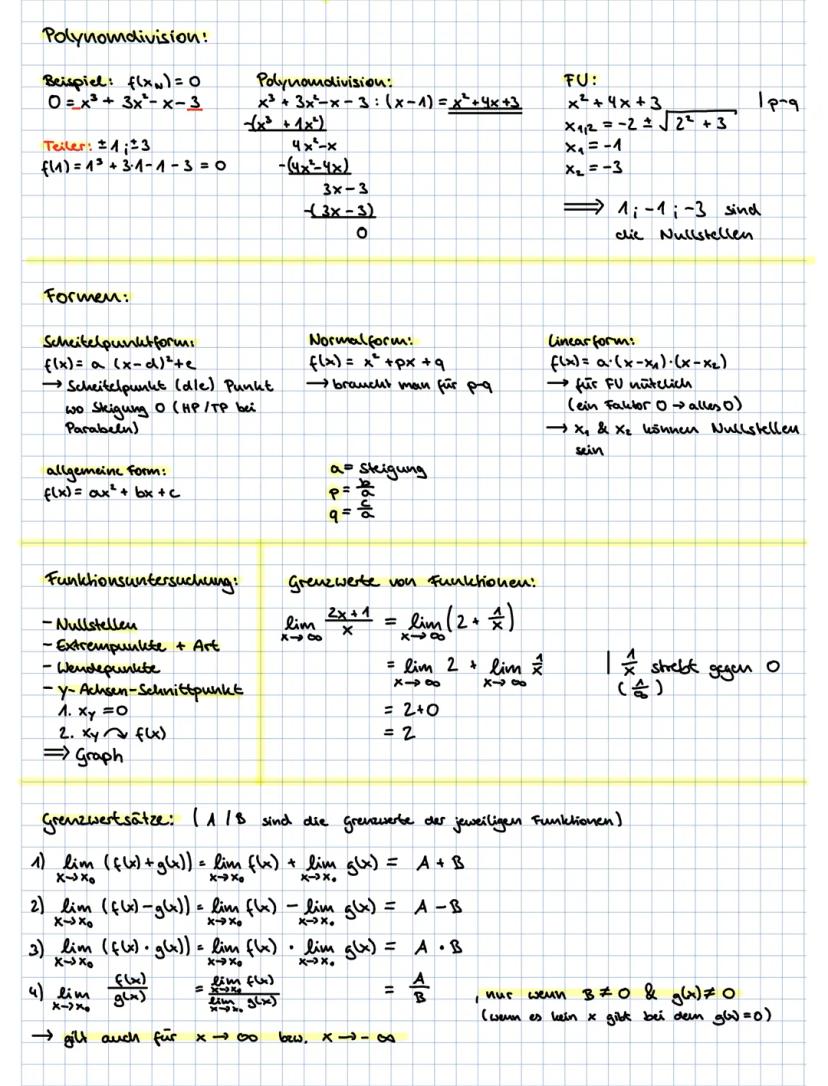 Polynomdivision:
Beispiel: f(x_N) = 0
0 = x³ + 3x² - x - 3
Teiler: ±1 ; ±3
f(1) = 1³ + 3·1 - 1 - 3 = 0
Polynomdivision:
x³ + 3x² - x - 3 : (x-1) = x² + 4x + 3
-(x³ + 1x²)
4x² - x
-(4x² - 4x)
3x - 3
-(3x - 3)
0
FU:
x² + 4x + 3 | p-q
x₁,₂ = -2 ± √(2² + 3)
x₁ = -1
x₂ = -3
⟹ 1 ; -1 ; -3 sind
die Nullstellen
Formen:
Scheitelpunktform:
f(x) = a (x-d)² + e
→ Scheitelpunkt (d/e) Punkt
wo Steigung 0 (HP/TP bei
Parabeln)
Normalform:
f(x) = x² + px + q
→ braucht man für p-q
Linearform:
f(x) = a·(x-x₁)·(x-x₂)
→ für FU nützlich
(ein Faktor 0 → alles 0)
→ x₁ & x₂ können Nullstellen
sein
allgemeine Form:
f(x) = ax² + bx + c
a = Steigung
p = b/a
q = c/a
Funktionsuntersuchung:
- Nullstellen
- Extrempunkte + Art
- Wendepunkte
- y-Achsen-Schnittpunkt
1. x_y = 0
2. x_y ↷ f(x)
⟹ Graph
Grenzwerte von Funktionen:
lim x→∞ (2x+1)/x = lim x→∞ (2 + 1/x)
= lim x→∞ 2 + lim x→∞ 1/x | 1/x strebt gegen 0
(1/∞)
= 2+0
= 2
Grenzwertsätze: (A/B sind die Grenzwerte der jeweiligen Funktionen)
1) lim x→x₀ (f(x)+g(x)) = lim x→x₀ f(x) + lim x→x₀ g(x) = A + B
2) lim x→x₀ (f(x)-g(x)) = lim x→x₀ f(x) - lim x→x₀ g(x) = A - B
3) lim x→x₀ (f(x)·g(x)) = lim x→x₀ f(x) · lim x→x₀ g(x) = A · B
4) lim x→x₀ f(x)/g(x) = lim x→x₀ f(x) / lim x→x₀ g(x) = A/B , nur wenn B ≠ 0 & g(x) ≠ 0
(wenn es kein x gibt bei dem g(x) = 0)
→ gilt auch für x → ∞ bzw. x → -∞